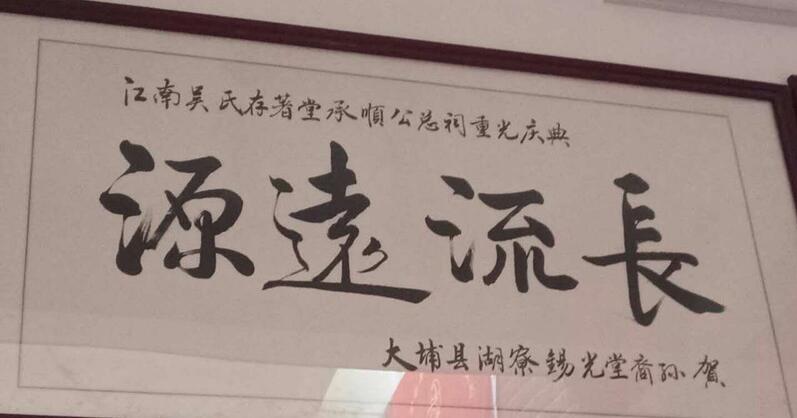 江南吴氏存著堂承順公总祠重光庆典
源遠流長
大埔县湖寮錫光堂裔孙贺